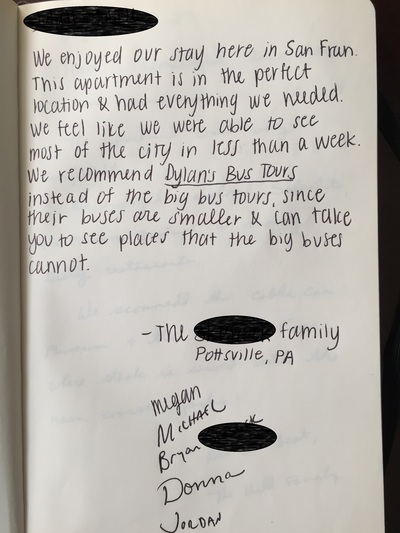 We enjoyed our stay here in San Fran.
This apartment is in the perfect
location & had everything we needed.
We feel like we were able to see
most of the city in less than a week.
We recommend Dylan's Bus Tours
instead of the big bus tours, since
their buses are smaller & can take
you to see places that the big buses
cannot.
- The family
Pottsville, PA
Megan
Michael
Bryan
Donna
Jordan